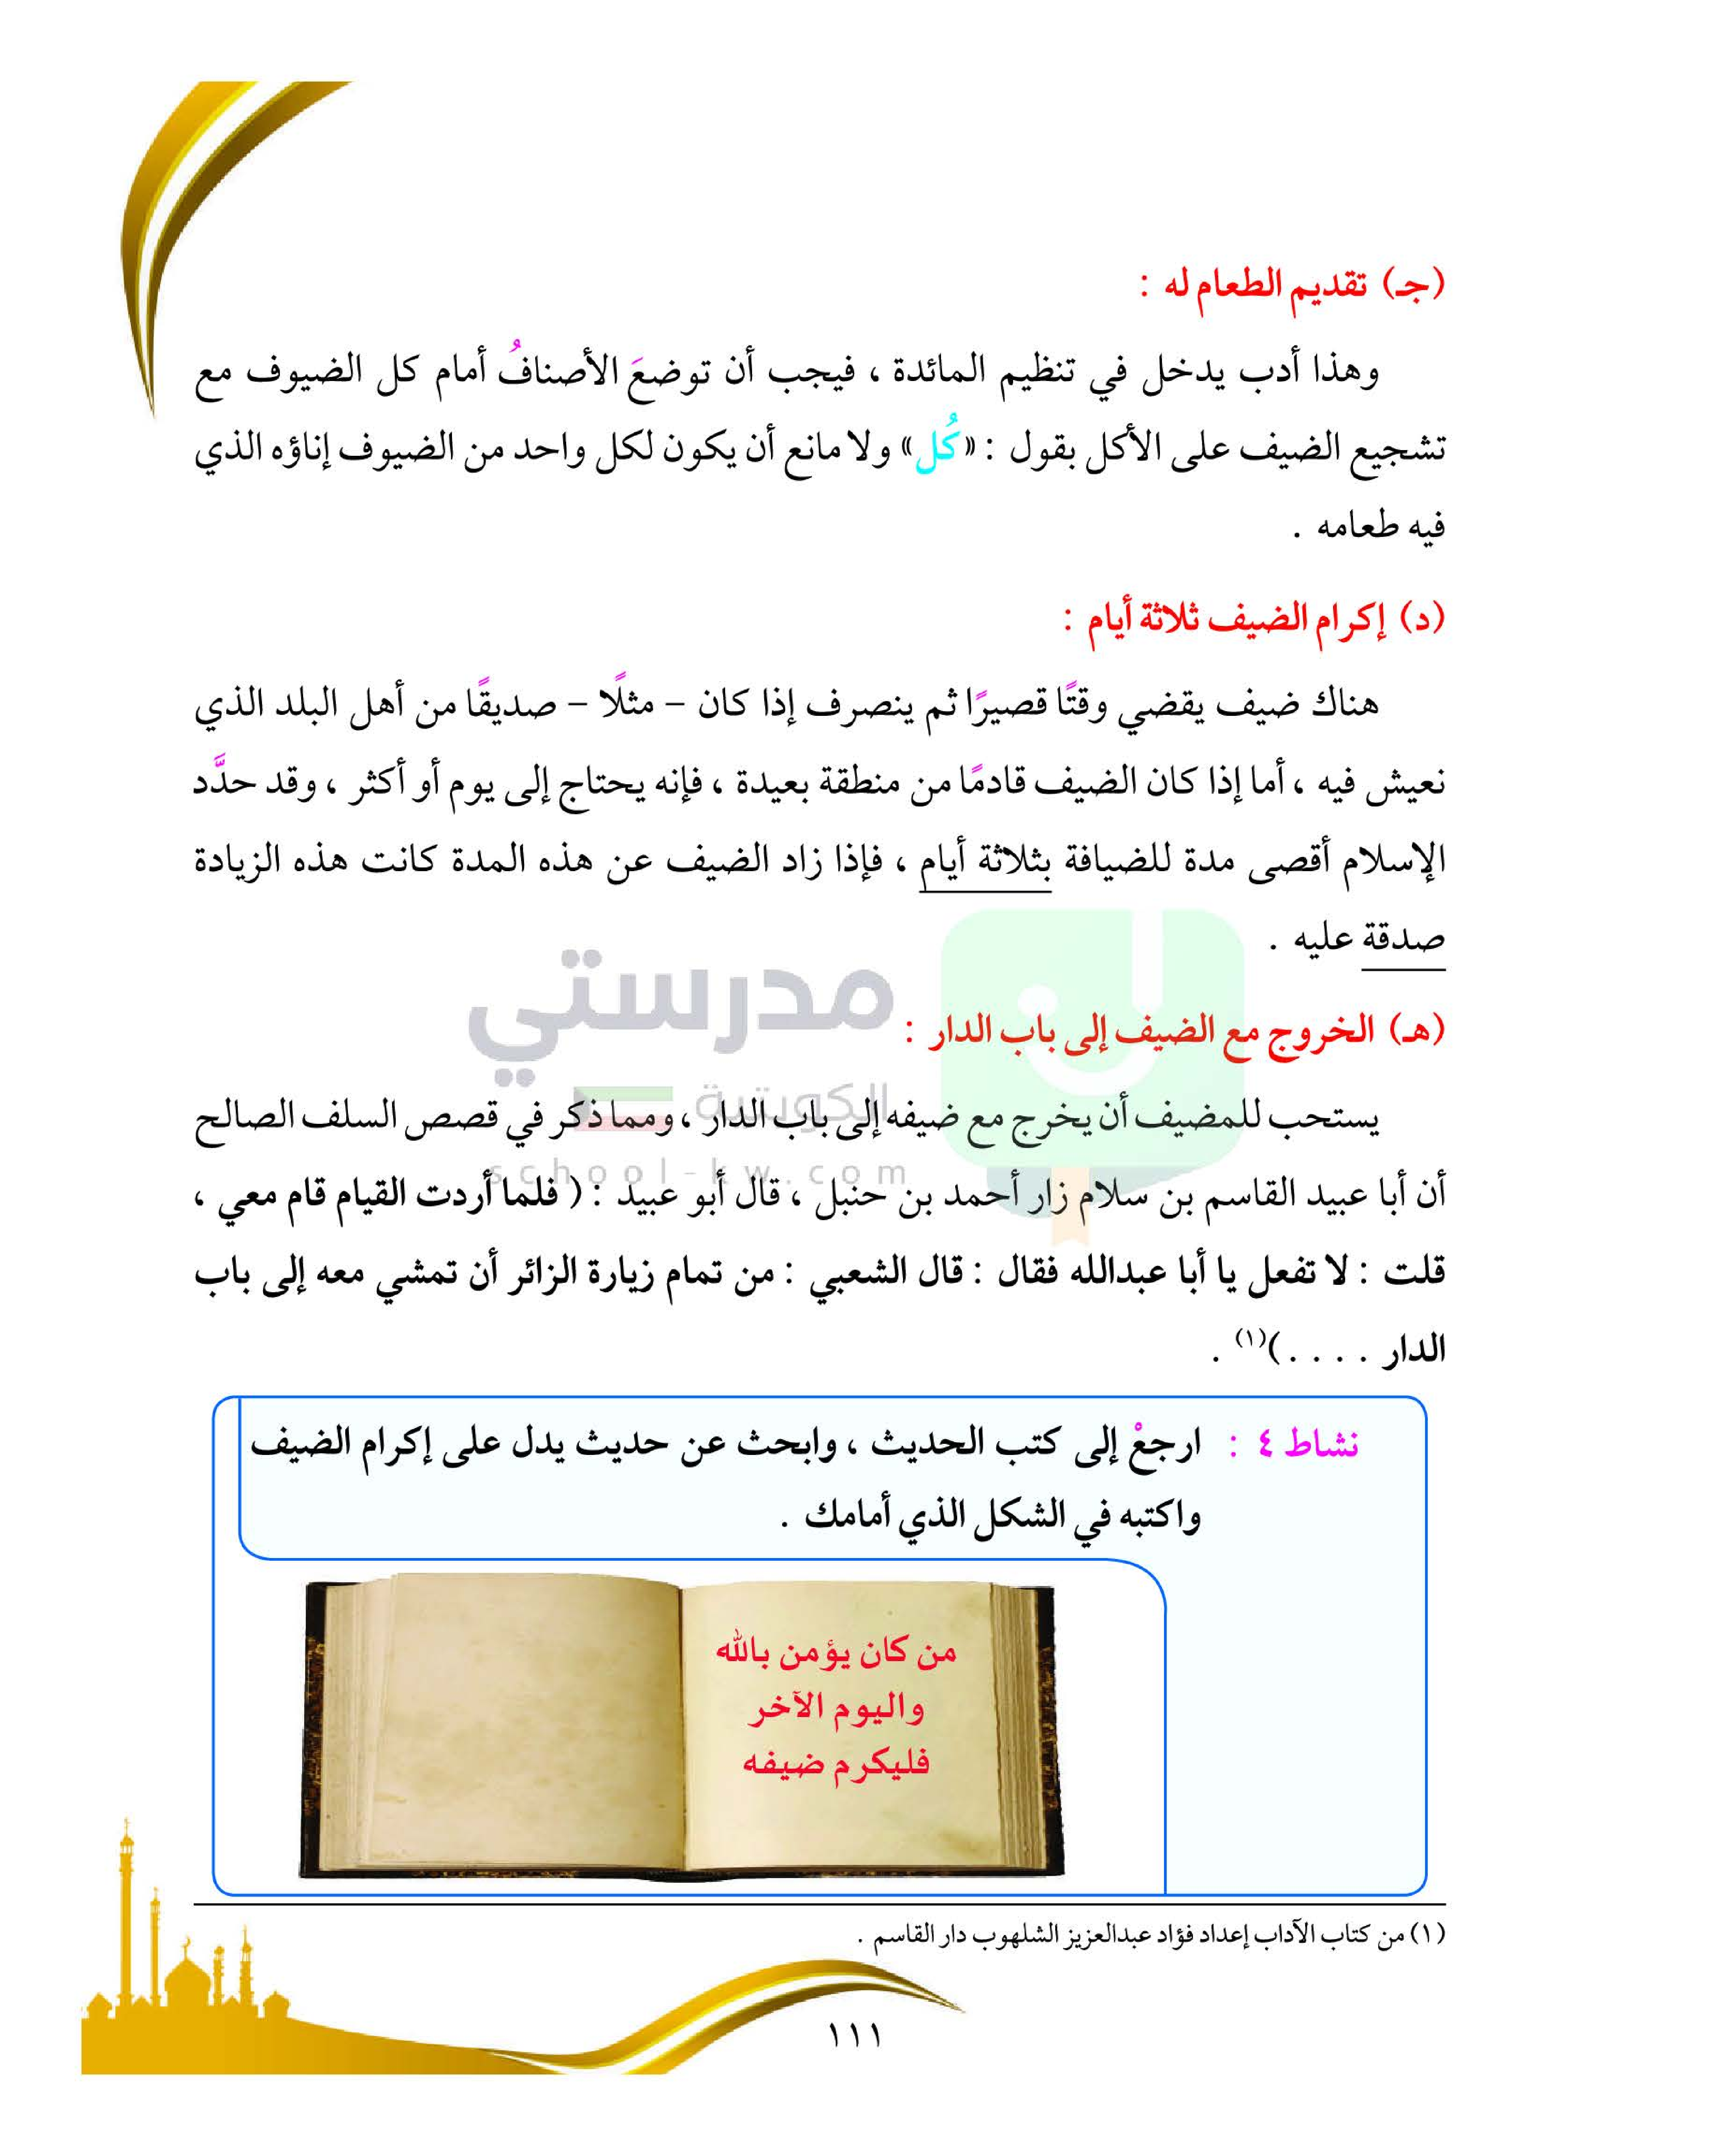 (جـ) تقديم الطعام له :
وهذا أدب يدخل في تنظيم المائدة ، فيجب أن توضعَ الأصنافُ أمام كل الضيوف مع
تشجيع الضيف على الأكل بقول : «كُل» ولا مانع أن يكون لكل واحد من الضيوف إناؤه الذي
فيه طعامه .
(د) إكرام الضيف ثلاثة أيام :
هناك ضيف يقضي وقتًا قصيرًا ثم ينصرف إذا كان – مثلًا – صديقًا من أهل البلد الذي
نعيش فيه ، أما إذا كان الضيف قادمًا من منطقة بعيدة ، فإنه يحتاج إلى يوم أو أكثر ، وقد حدَّد
الإسلام أقصى مدة للضيافة بثلاثة أيام ، فإذا زاد الضيف عن هذه المدة كانت هذه الزيادة
صدقة عليه .
مدرستي
الكويتية
school-kw.com
(هـ) الخروج مع الضيف إلى باب الدار :
يستحب للمضيف أن يخرج مع ضيفه إلى باب الدار ، ومما ذكر في قصص السلف الصالح
أن أبا عبيد القاسم بن سلام زار أحمد بن حنبل ، قال أبو عبيد : ( فلما أردت القيام قام معي ،
قلت : لا تفعل يا أبا عبدالله فقال : قال الشعبي : من تمام زيارة الزائر أن تمشي معه إلى باب
الدار . . . . )(١) .
نشاط ٤ : ارجعْ إلى كتب الحديث ، وابحث عن حديث يدل على إكرام الضيف
واكتبه في الشكل الذي أمامك .
من كان يؤمن بالله
واليوم الآخر
فليكرم ضيفه
(١) من كتاب الآداب إعداد فؤاد عبدالعزيز الشلهوب دار القاسم .
١١١